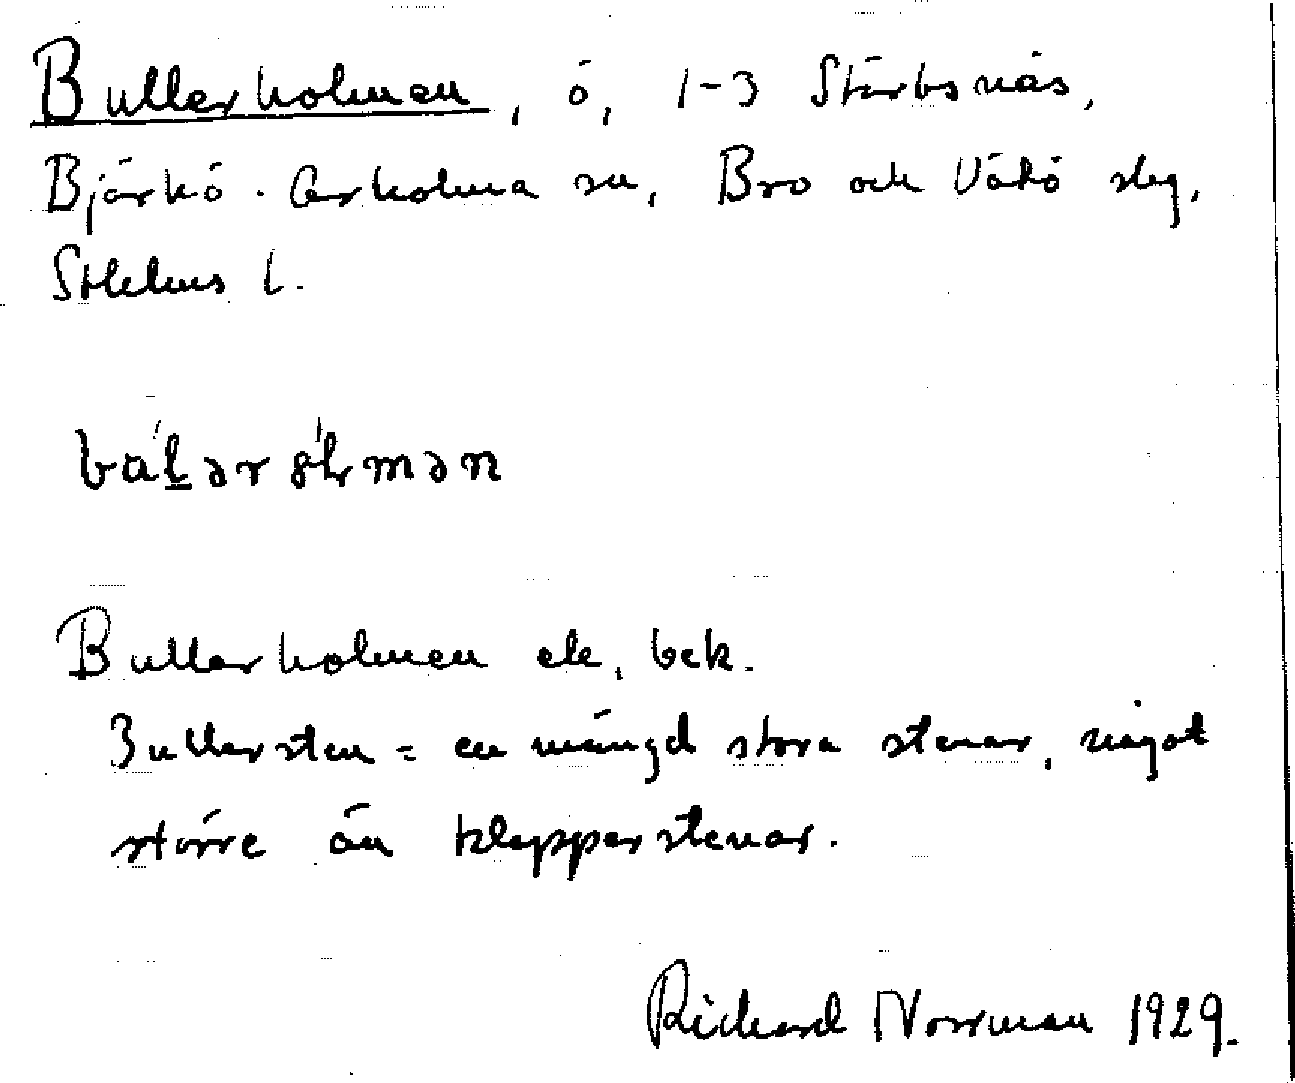 Bullerholmen, ö, 1-3 Starbsnäs,
Björkö-Arholma sn, Bro och Vätö slg,
Sthlms l.
Bullerholmen ek, bek.
Bullersten = en mängd stora stenar, något
större än klapperstenar.
Richard Norrman 1929.